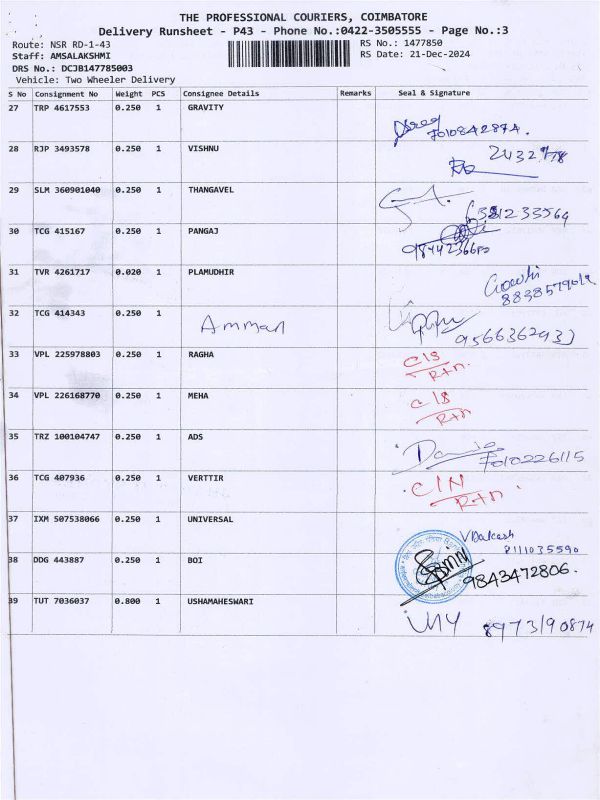 THE PROFESSIONAL COURIERS, COIMBATORE
Delivery Runsheet - P43 - Phone No.:0422-3505555 - Page No.:3
Route: NSR RD-1-43 RS No.: 1477850
Staff: AMSALAKSHMI RS Date: 21-Dec-2024
DRS No.: DCJB147785003
Vehicle: Two Wheeler Delivery
S No Consignment No Weight PCS Consignee Details Remarks Seal & Signature
27 TRP 4617553 0.250 1 GRAVITY
7010842874.
28 RJP 3493578 0.250 1 VISHNU
29 SLM 360901040 0.250 1 THANGAVEL
30 TCG 415167 0.250 1 PANGAJ
31 TVR 4261717 0.020 1 PLAMUDHIR
Gowthi
32 TCG 414343 0.250 1
Amman
33 VPL 225978803 0.250 1 RAGHA C/S
R+n.
34 VPL 226168770 0.250 1 MEHA C/S
R+n
35 TRZ 100104747 0.250 1 ADS
7010226115
36 TCG 407936 0.250 1 VERTTIR C/N
R+n.
37 IXM 507538066 0.250 1 UNIVERSAL
8111035590
38 DDG 443887 0.250 1 BOI
9843472806.
39 TUT 7036037 0.800 1 USHAMAHESWARI
8973190874